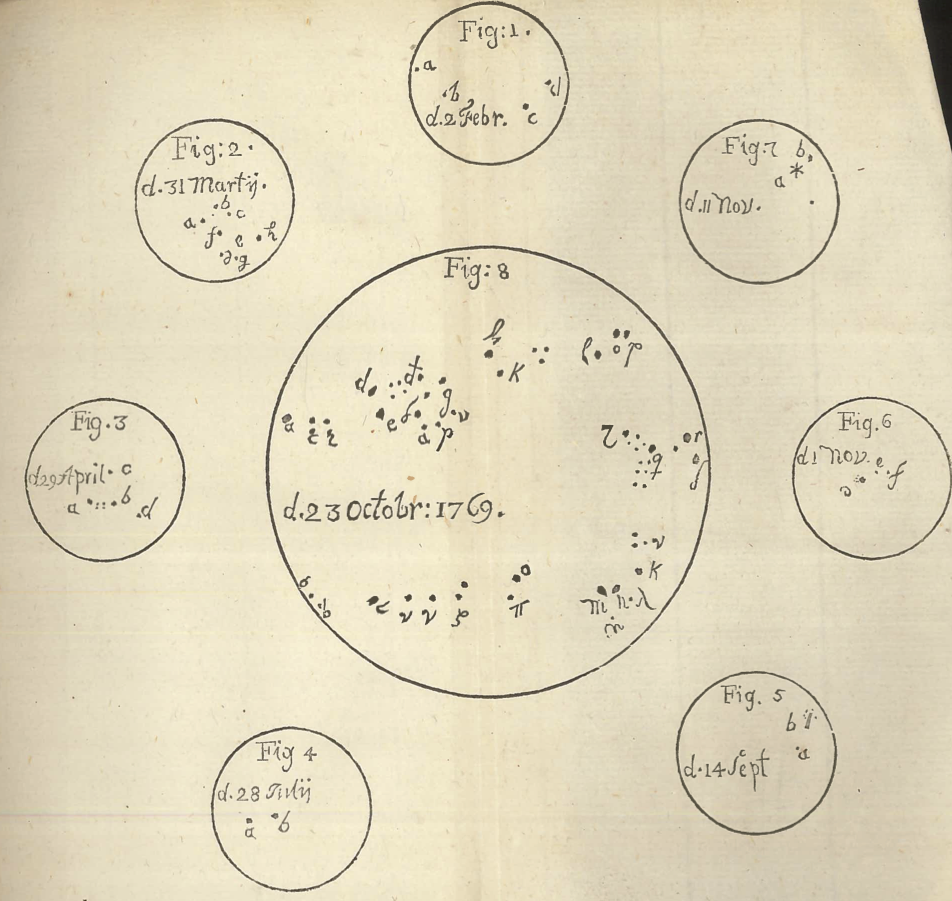 Fig:1.
a
b
d
d.2 Febr.
c
Fig:2.
d.31 Martij.
b
c
a
f
e
h
g
Fig:7
b
a
*
d.11 Nov.
Fig:8
h
k
l
o
p
d
d
g
a
e
f
v
a
p
q
r
d.23 Octobr:1769.
ν
k
b
ν
ν
π
m
n
λ
Fig.3
d29 April.
c
a
b
d
Fig.6
d1 Nov.
e
f
Fig 4
d.28 Julij
a
b
Fig. 5
b
a
d.14 Sept